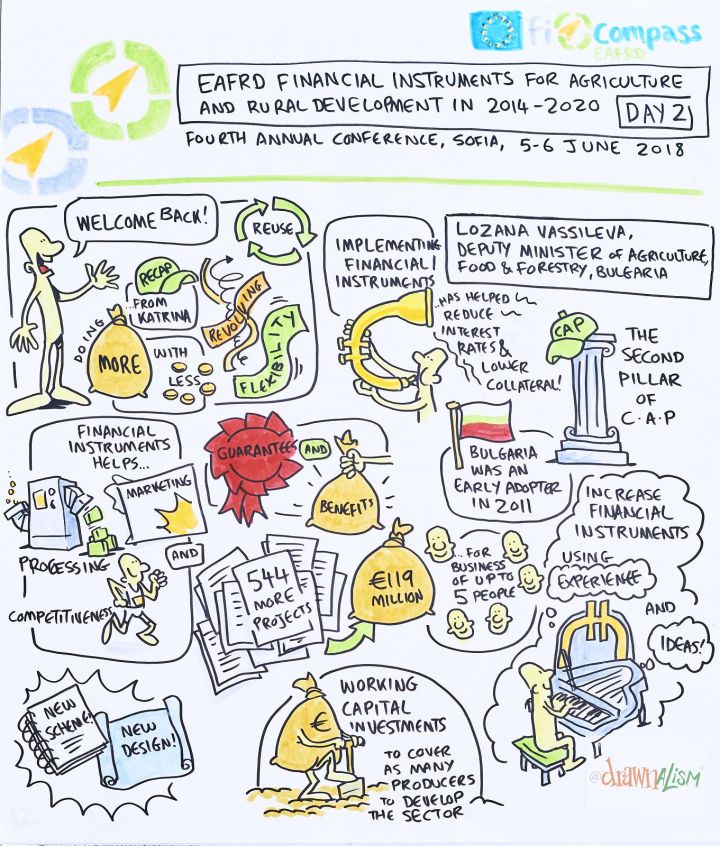 fi compass
EAFRD
EAFRD FINANCIAL INSTRUMENTS FOR AGRICULTURE
AND RURAL DEVELOPMENT IN 2014-2020 DAY 2
FOURTH ANNUAL CONFERENCE, SOFIA, 5-6 JUNE 2018
WELCOME BACK!
REUSE
RECAP
...FROM
KATRINA
DOING
MORE
WITH
LESS
REVOLVING
FLEXIBILITY
IMPLEMENTING
FINANCIAL
INSTRUMENTS
...HAS HELPED
REDUCE
INTEREST
RATES &
LOWER
COLLATERAL!
LOZANA VASSILEVA,
DEPUTY MINISTER OF AGRICULTURE,
FOOD & FORESTRY, BULGARIA
CAP
THE
SECOND
PILLAR
OF
C.A.P
BULGARIA
WAS AN
EARLY ADOPTER
IN 2011
FINANCIAL
INSTRUMENTS
HELPS...
MARKETING
PROCESSING
AND
COMPETITIVENESS
GUARANTEES AND
BENEFITS
544
MORE
PROJECTS
€119
MILLION
...FOR
BUSINESS
OF UP TO
5 PEOPLE
INCREASE
FINANCIAL
INSTRUMENTS
USING
EXPERIENCE
AND
IDEAS!
NEW
SCHEME!
NEW
DESIGN!
€
WORKING
CAPITAL
INVESTMENTS
TO COVER
AS MANY
PRODUCERS
TO DEVELOP
THE SECTOR
@drawnALISM
12.